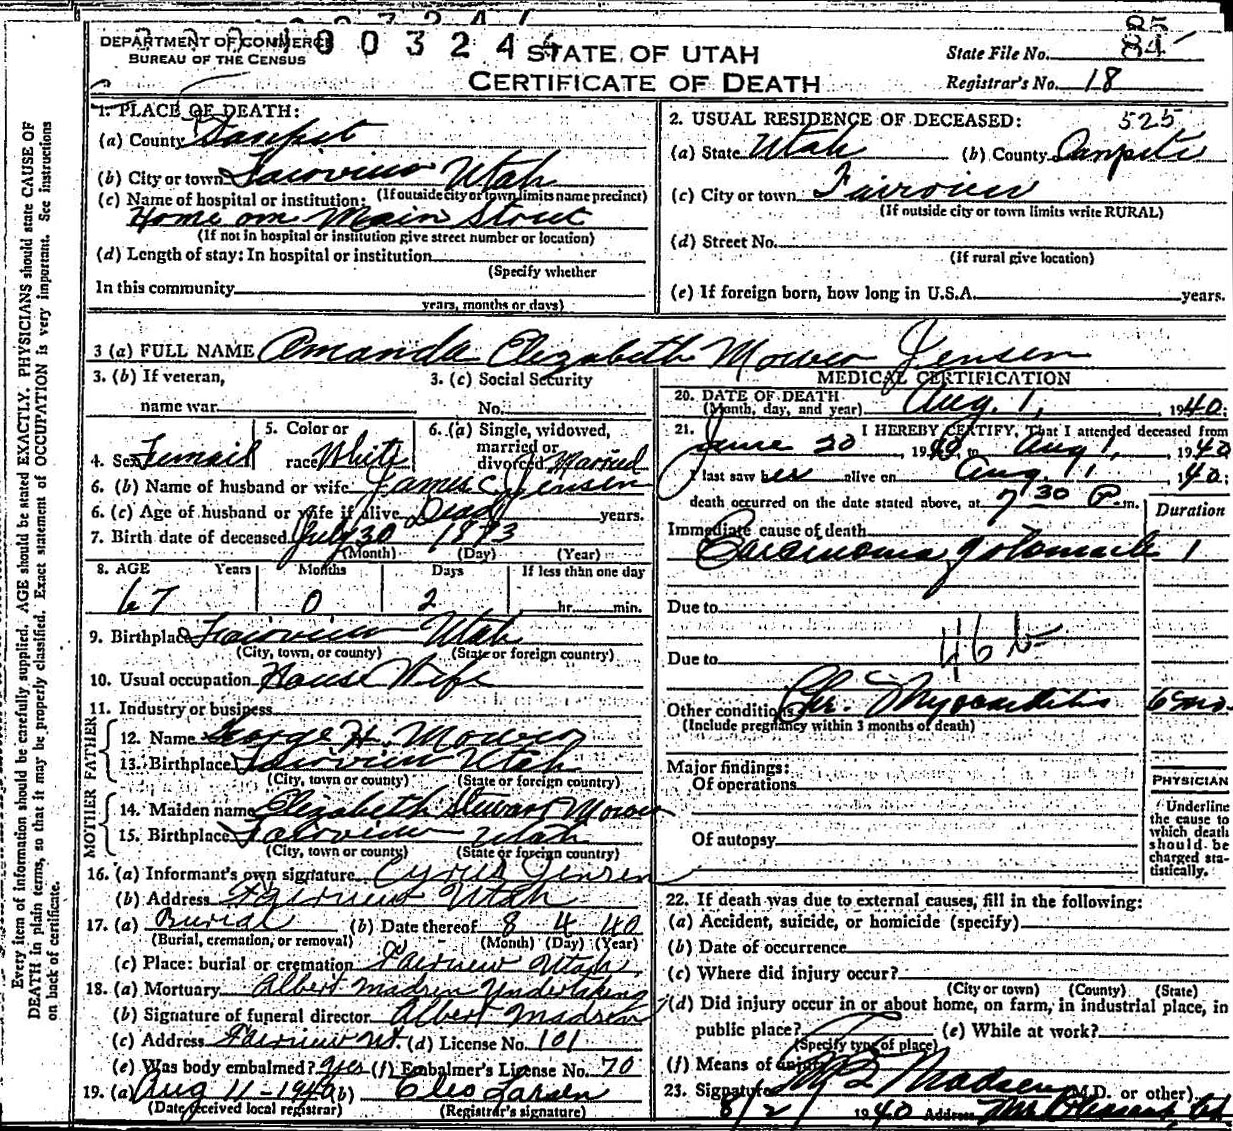 DEPARTMENT OF COMMERCE
BUREAU OF THE CENSUS
STATE OF UTAH
CERTIFICATE OF DEATH
State File No. 84
Registrar's No. 18
1. PLACE OF DEATH:
(a) County Sanpete
(b) City or town Fairview Utah
(If outside city or town limits name precinct)
(c) Name of hospital or institution:
Home on Main Street
(If not in hospital or institution give street number or location)
(d) Length of stay: In hospital or institution
(Specify whether
In this community
years, months or days)
2. USUAL RESIDENCE OF DECEASED: 525
(a) State Utah (b) County Sanpete
(c) City or town Fairview
(If outside city or town limits write RURAL)
(d) Street No.
(If rural give location)
(e) If foreign born, how long in U.S.A. years.
3 (a) FULL NAME Amanda Elizabeth Mower Jensen
3. (b) If veteran,
name war
3. (c) Social Security
No.
4. Sex Femail
5. Color or
race White
6. (a) Single, widowed,
married or
divorced Married
6. (b) Name of husband or wife James C. Jensen
6. (c) Age of husband or wife if alive Dead years.
7. Birth date of deceased July 30 1873
(Month) (Day) (Year)
8. AGE Years Months Days If less than one day
67 0 2 hr. min.
9. Birthplace Fairview Utah
(City, town, or county) (State or foreign country)
10. Usual occupation House Wife
11. Industry or business
FATHER
12. Name George H. Mower
13. Birthplace Fairview Utah
(City, town or county) (State or foreign country)
MOTHER
14. Maiden name Elizabeth Stewart Mower
15. Birthplace Fairview Utah
(City, town or county) (State or foreign country)
16. (a) Informant's own signature Cyrus Jensen
(b) Address Fairview Utah
17. (a) Burial (b) Date thereof 8 4 40
(Burial, cremation, or removal) (Month) (Day) (Year)
(c) Place: burial or cremation Fairview Utah
18. (a) Mortuary Albert Madsen Undertaking
(b) Signature of funeral director Albert Madsen
(c) Address Fairview Ut. (d) License No. 101
(e) Was body embalmed? yes (f) Embalmer's License No. 70
19. (a) Aug 11-1940 (b) Cleo Larsen
(Date received local registrar) (Registrar's signature)
MEDICAL CERTIFICATION
20. DATE OF DEATH
(Month, day, and year) Aug. 1, 1940.
21. I HEREBY CERTIFY, That I attended deceased from
June 20 1940 to Aug 1, 1940
I last saw her alive on Aug. 1 40;
death occurred on the date stated above, at 7 30 P. m.
Duration
Immediate cause of death
Carcinoma of stomach 1
Due to
46 b
Due to
Other conditions Chr. Myocarditis 6 mo.
(Include pregnancy within 3 months of death)
Major findings:
Of operations
Of autopsy
PHYSICIAN
Underline
the cause to
which death
should be
charged sta-
tistically.
22. If death was due to external causes, fill in the following:
(a) Accident, suicide, or homicide (specify)
(b) Date of occurrence
(c) Where did injury occur?
(City or town) (County) (State)
(d) Did injury occur in or about home, on farm, in industrial place, in
public place? (e) While at work?
(Specify type of place)
(f) Means of injury
23. Signature Madsen (M.D. or other)
8/2/ 1940 Address
Every item of information should be carefully supplied. AGE should be stated EXACTLY. PHYSICIANS should state CAUSE OF
DEATH in plain terms, so that it may be properly classified. Exact statement of OCCUPATION is very important. See instructions
on back of certificate.